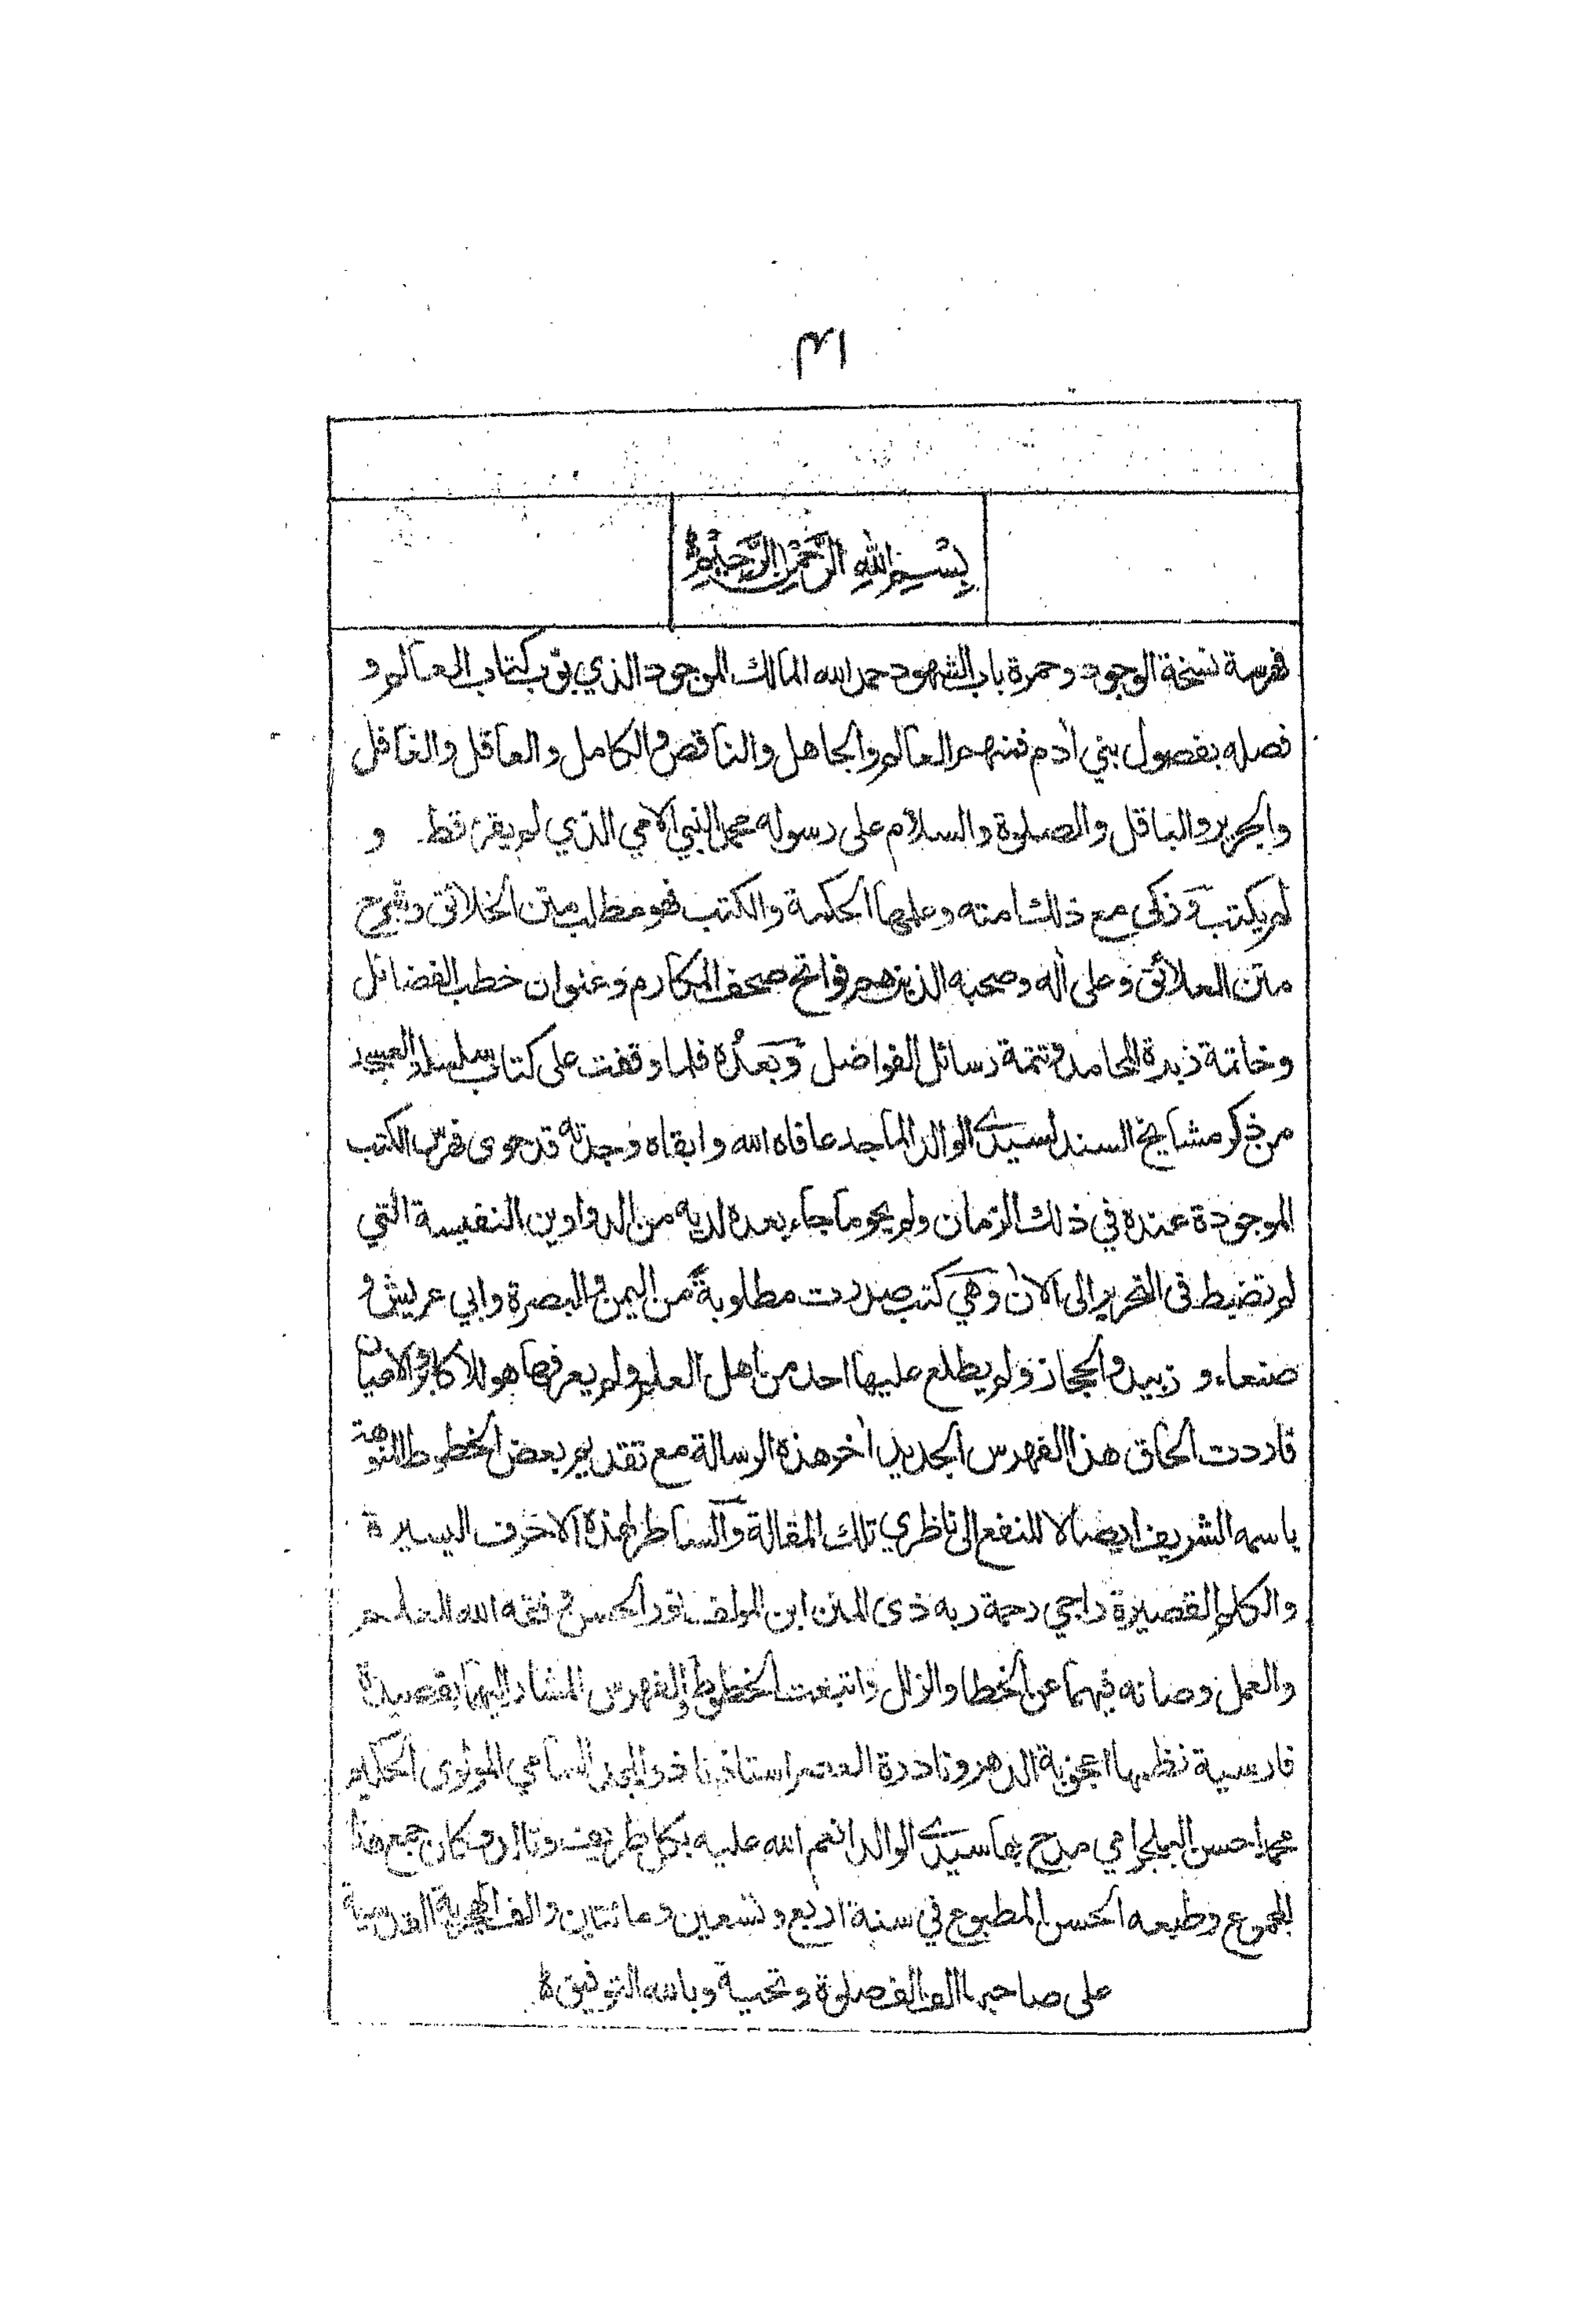 ٣١
بِسْمِ اللهِ الرَّحْمٰنِ الرَّحِيْمِ
فهرسة نسخة الوجود وحمرة باب الشهود حمد الله المالك الموجود الذي بوّب كتاب العالم و
فصله بفصول بني اٰدم فمنهم العالم والجاهل والناقص والكامل والعاقل والغافل
والنحرير والباقل والصلوة والسلام على رسوله محمد النبي الامي الذي لم يقرء قط و
لم يكتب وزكى مع ذلك امته وعلمها الحكمة والكتب فهو مطلب متن الخلائق وشرح
متن العلائق وعلى اٰله وصحبه الذين هم فواتح صحف المكارم وعنوان خطب الفضائل
وخاتمة زبدة المحامد وتتمة رسائل الفواضل وبعدُ فلما وقفت على كتاب سلسلة العسجد
من ذكر مشايخ السند لسيدي الوالد الماجد عافاه الله وابقاه وجدته قد حوى فهرس الكتب
الموجودة عنده في ذلك الزمان ولم يحو ما جاء بعده لديه من الدواوين النفيسة التي
لم تضبط فى التحرير الى الاٰن وهي كتب صدرت مطلوبةً من اليمن والبصرة وابي عريش و
صنعاء و زبيد والحجاز ولم يطلع عليها احد من اهل العلم ولم يعرفها هو للاكابر والاعيان
فاردت الحاق هذا الفهرس الجديد اٰخر هذه الرسالة مع تقديم بعض الخطوط المنوهة
باسمه الشريف ايصالا للنفع الى ناظري تلك المقالة والساطر لهذه الاحرف اليسيرة
والكلم القصيرة راجي رحمة ربه ذى المنن ابن المولف نور الحسن وفقه الله للعلم
والعمل وصانه فيهما عن الخطا والزلل واتبعت الخطوط والفهرس المشار اليها بقصيدة
فارسية نظمها اعجوبة الدهر ونادرة العصر استاذنا ذو المجد السامي المولوى الحكيم
محمد احسن البلجرامي مدح بها سيدي الوالد انعم الله عليه بكل طريف وتالد وكان جمع هذا
المجموع وطبعه الحسن المطبوع في سنة اربع وتسعين ومائتين والف الهجرية القدسية
على صاحبها الف الف صلوة وتحية وبالله التوفيق